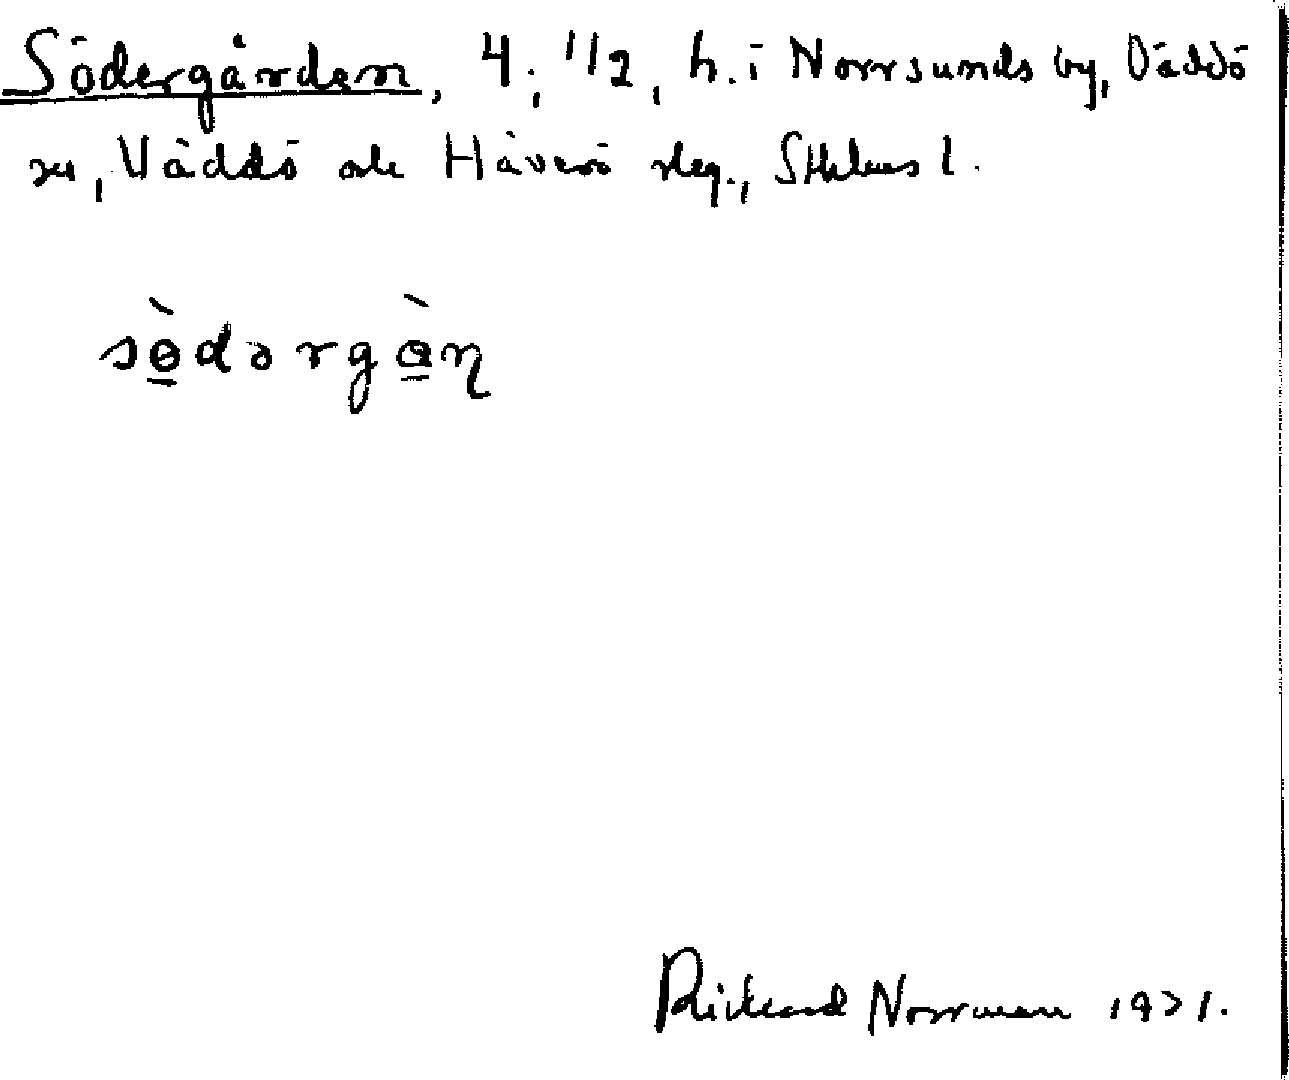 Södergården, 4; 1/2, h. i Norrsunds by, Väddö
sn, Väddö och Häverö slag., Sthlms l.
sɵ̀dərgɑ̀ɳ
Rickard Norrman 1971.